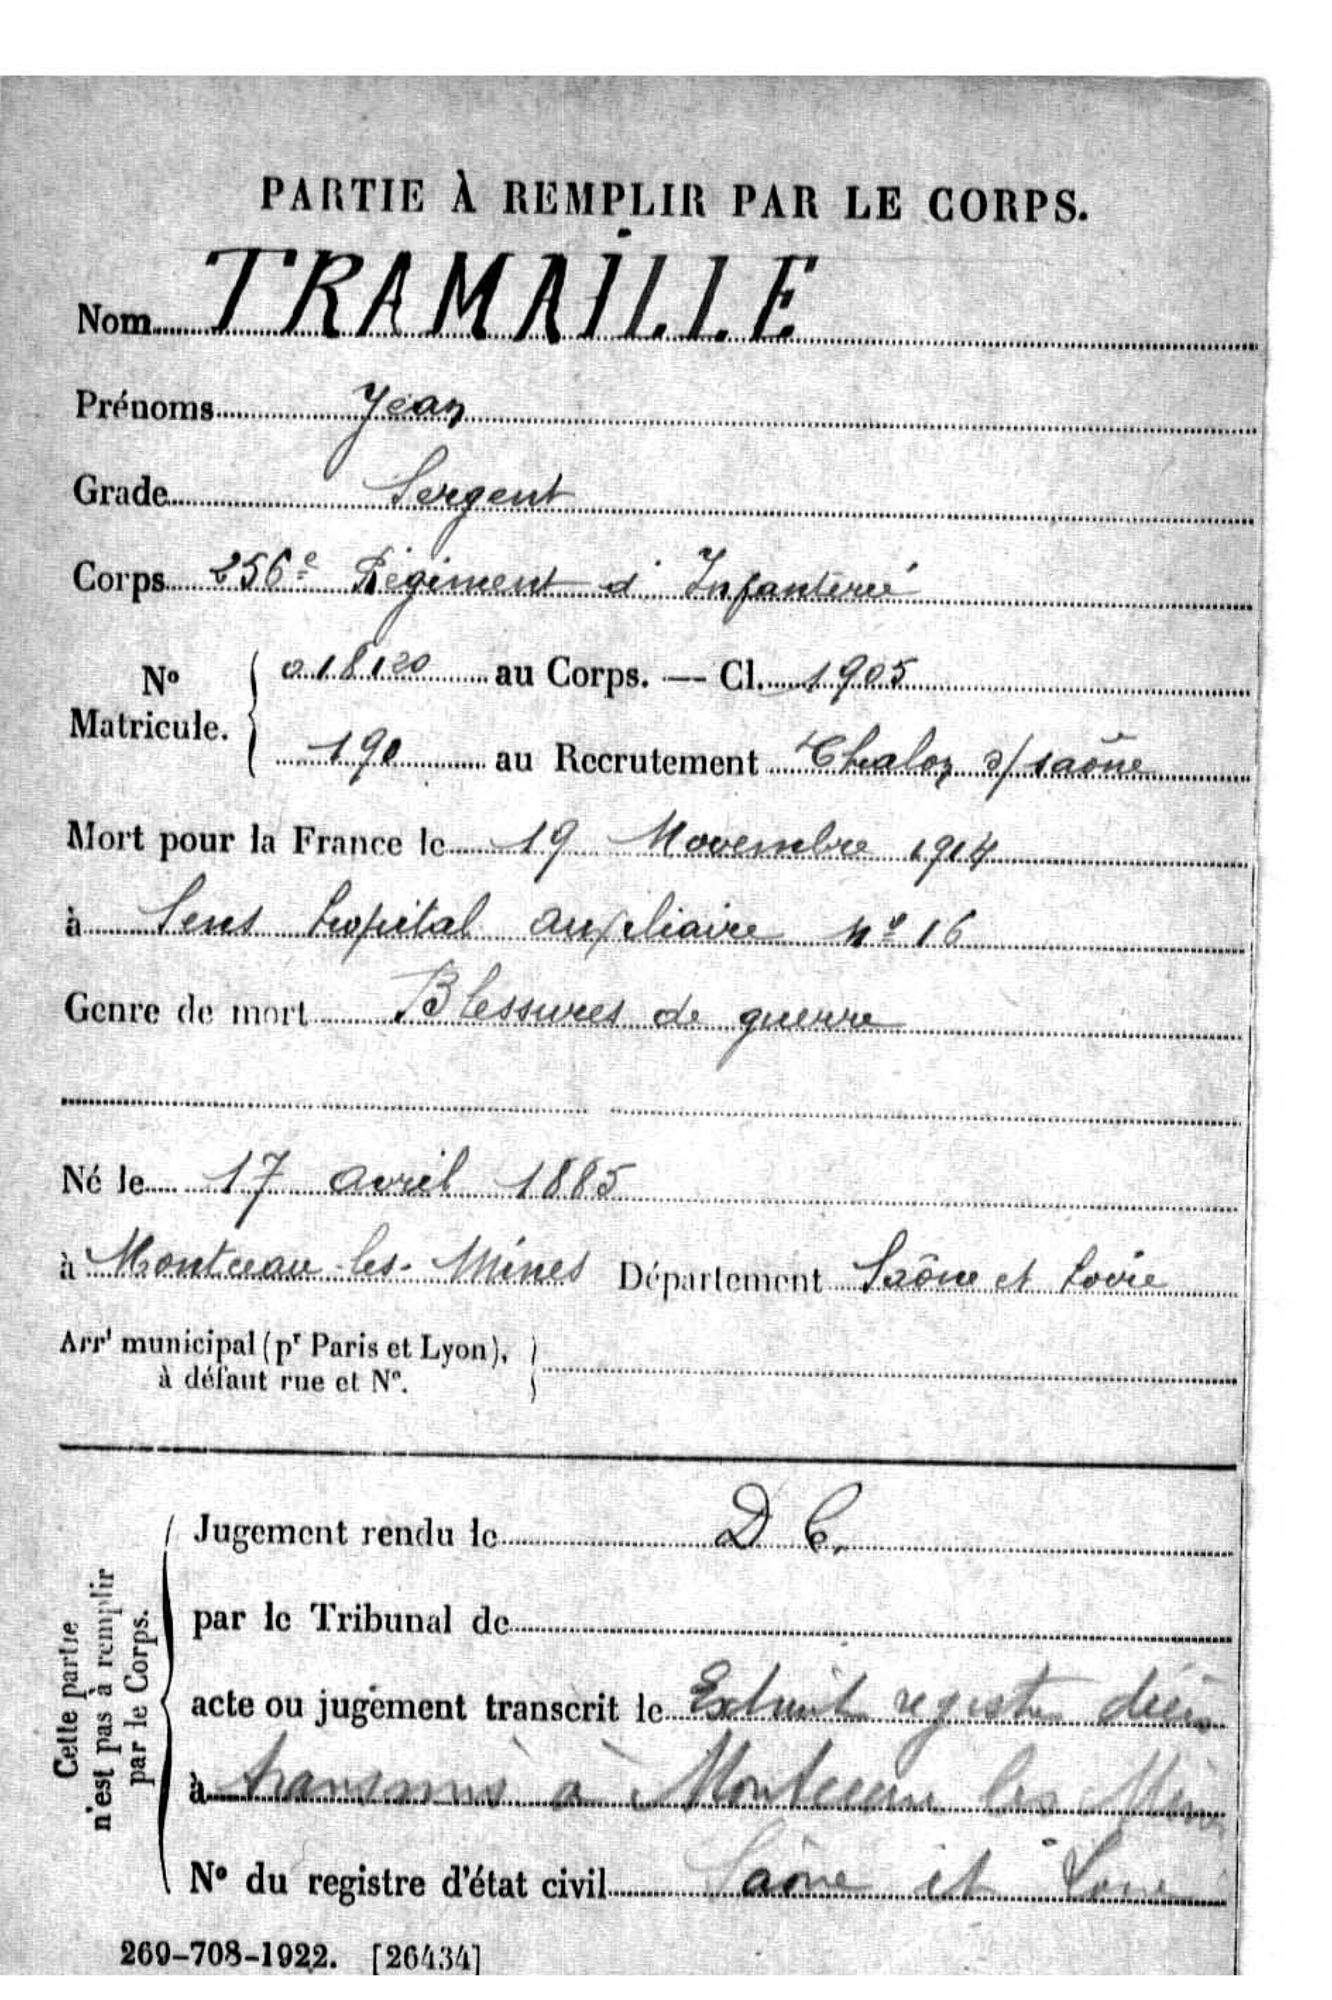 PARTIE À REMPLIR PAR LE CORPS.
Nom TRAMAILLE
Prénoms Jean
Grade Sergent
Corps 256e Régiment d'Infanterie
No Matricule. 018120 au Corps. — Cl. 1905
190 au Recrutement Chalon s/ saône
Mort pour la France le 19 Novembre 1914
à Sens hopital auxiliaire No 16
Genre de mort Blessures de guerre
Né le 17 avril 1885
à Montceau-les-Mines Département Saône et Loire
Arrt municipal (pr Paris et Lyon),
à défaut rue et No.
Cette partie
n'est pas à remplir
par le Corps.
Jugement rendu le D C.
par le Tribunal de
acte ou jugement transcrit le Extrait registre décès
à transmis à Montceau les Mines
No du registre d'état civil Saône et Loire
269-708-1922. [26434]